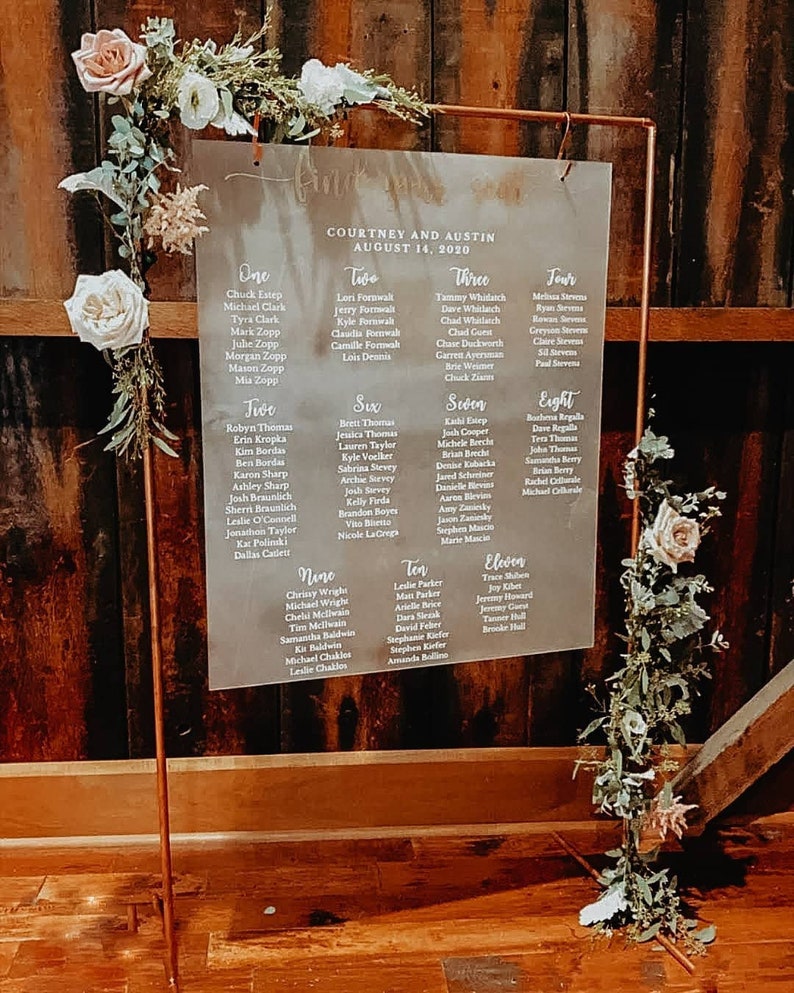 find your seat
COURTNEY AND AUSTIN
AUGUST 14, 2020
One
Chuck Estep
Michael Clark
Tyra Clark
Mark Zopp
Julie Zopp
Morgan Zopp
Mason Zopp
Mia Zopp
Two
Lori Fornwalt
Jerry Fornwalt
Kyle Fornwalt
Claudia Fornwalt
Camille Fornwalt
Lois Dennis
Three
Tammy Whitlatch
Dave Whitlatch
Chad Whitlatch
Chad Guest
Chase Duckworth
Garrett Ayersman
Brie Weimer
Chuck Ziants
Four
Melissa Stevens
Ryan Stevens
Rowan Stevens
Greyson Stevens
Claire Stevens
Sil Stevens
Paul Stevens
Five
Robyn Thomas
Erin Kropka
Kim Bordas
Ben Bordas
Karon Sharp
Ashley Sharp
Josh Braunlich
Sherri Braunlich
Leslie O'Connell
Jonathon Taylor
Kat Polinski
Dallas Catlett
Six
Brett Thomas
Jessica Thomas
Lauren Taylor
Kyle Voelker
Sabrina Stevey
Archie Stevey
Josh Stevey
Kelly Firda
Brandon Boyes
Vito Bitetto
Nicole LaCrega
Seven
Kathi Estep
Josh Cooper
Michele Brecht
Brian Brecht
Denise Kubacka
Jared Schreiner
Danielle Blevins
Aaron Blevins
Amy Zaniesky
Jason Zaniesky
Stephen Mascio
Marie Mascio
Eight
Bozhena Regalla
Dave Regalla
Tera Thomas
John Thomas
Samantha Berry
Brian Berry
Rachel Cellurale
Michael Cellurale
Nine
Chrissy Wright
Michael Wright
Chelsi McIlwain
Tim McIlwain
Samantha Baldwin
Kit Baldwin
Michael Chaklos
Leslie Chaklos
Ten
Leslie Parker
Matt Parker
Arielle Brice
Dara Slezak
David Felter
Stephanie Kiefer
Stephen Kiefer
Amanda Bollino
Eleven
Trace Shiben
Joy Kibet
Jeremy Howard
Jeremy Guest
Tanner Hull
Brooke Hull